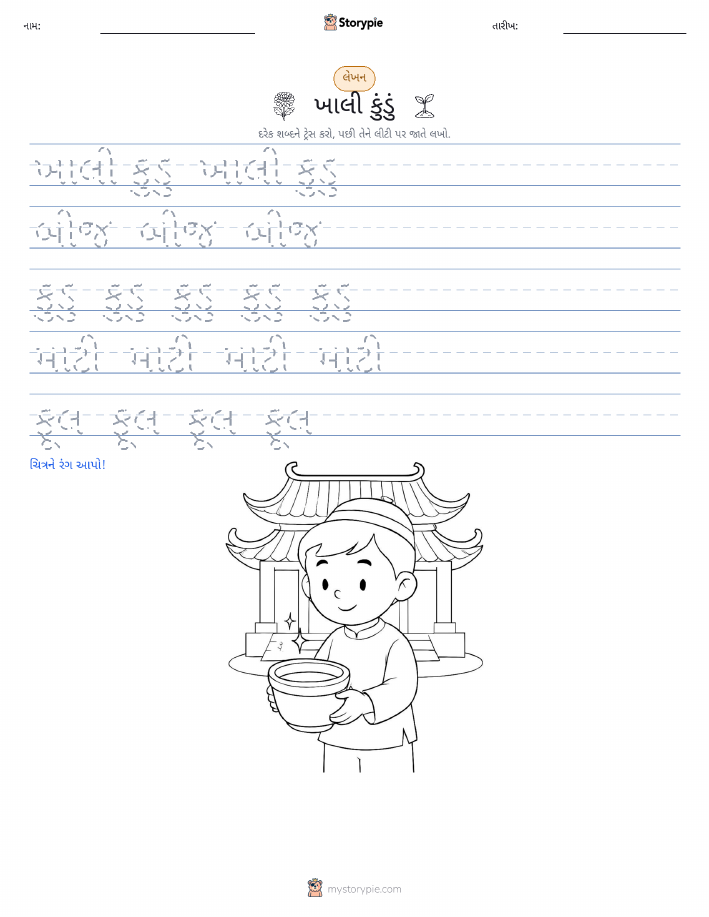 નામ: Storypie તારીખ:
લેખન
ખાલી કુંડું
દરેક શબ્દને ટ્રેસ કરો, પછી તેને લીટી પર જાતે લખો.
ખાલી કુંડું ખાલી કુંડું
બીજ બીજ બીજ
કુંડું કુંડું કુંડું કુંડું કુંડું
માટી માટી માટી માટી
ફૂલ ફૂલ ફૂલ ફૂલ
ચિત્રને રંગ આપો!
mystorypie.com